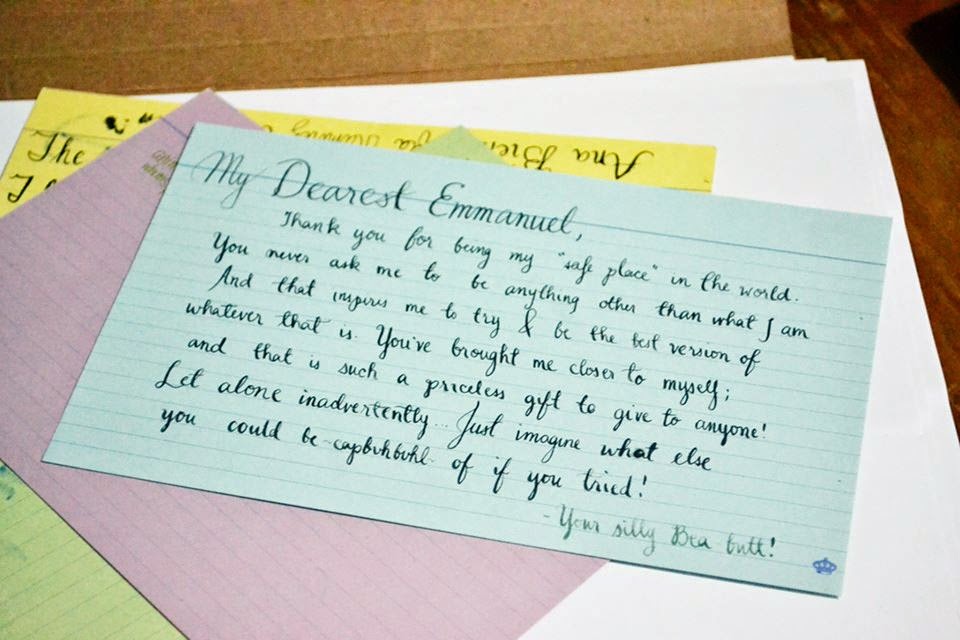 My Dearest Emmanuel,
Thank you for being my "safe place" in the world.
You never ask me to be anything other than what I am
And that inspires me to try & be the best version of
whatever that is. You've brought me closer to myself;
and that is such a priceless gift to give to anyone!
Let alone inadvertently... Just imagine what else
you could be -capbuhbuhl- of if you tried!
- Your silly Bea butt!
The
Ana